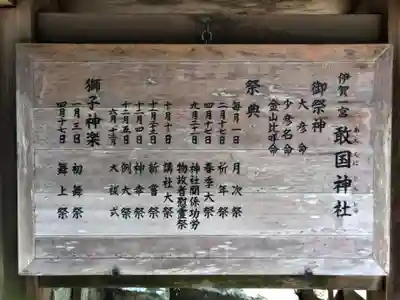 伊賀一宮 敢国神社
あえくに じんじゃ
御祭神
大彦命
少彦名命
金山比咩命
祭典
毎月一日 月次祭
二月十七日 祈年祭
四月十七日 春季大祭
九月二十日 神社関係功労物故者慰霊祭
十月十日 講社大祭
十一月二十三日 新嘗祭
十二月四日 神幸祭
十二月五日 例大祭
六月十二月 大祓式
獅子神楽
一月三日 初舞祭
四月十七日 舞上祭